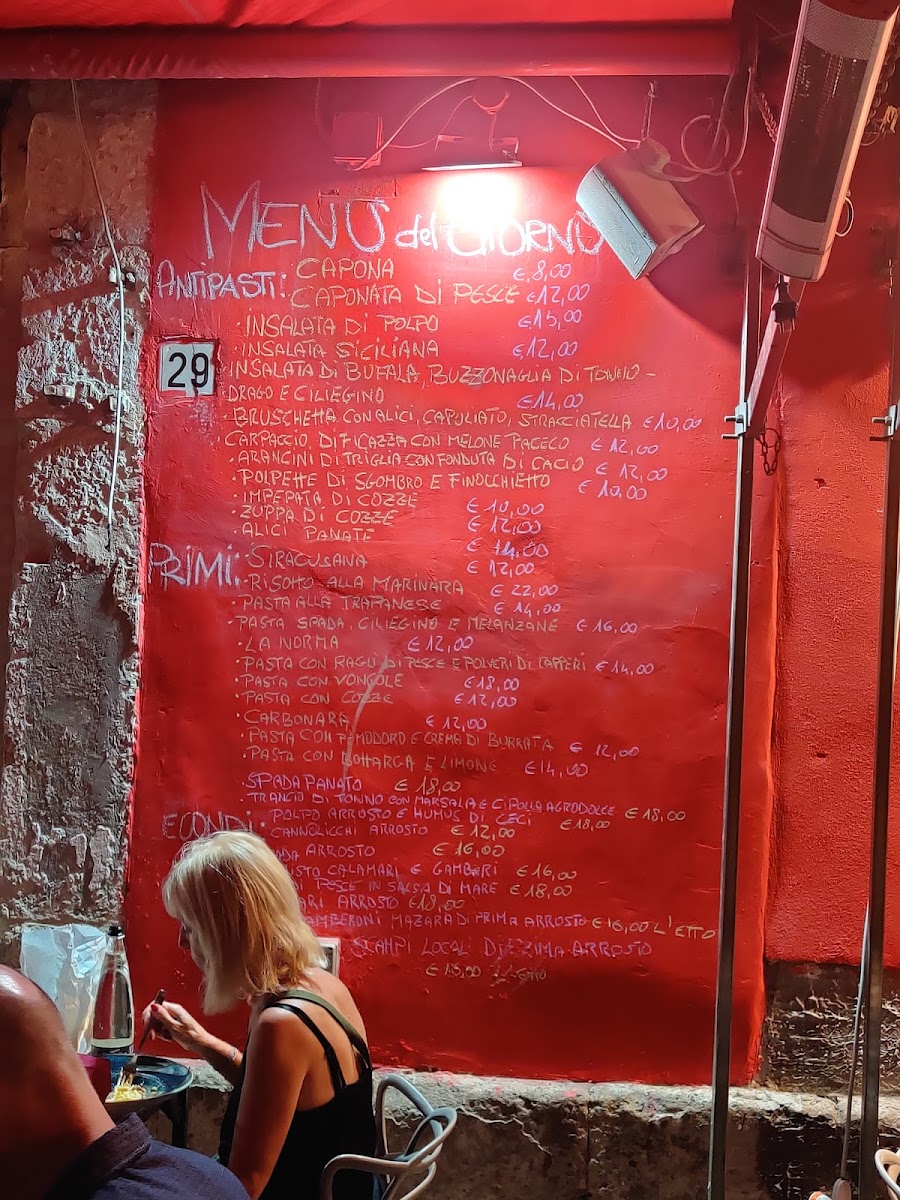 MENÙ del GIORNO
ANTIPASTI: CAPONA € 8,00
CAPONATA DI PESCE € 12,00
· INSALATA DI POLPO € 15,00
· INSALATA SICILIANA € 12,00
29
· INSALATA DI BUFALA, BUZZONAGLIA DI TONNO -
DRAGO E CILIEGINO € 14,00
· BRUSCHETTA CON ALICI, CAPULIATO, STRACCIATELLA € 10,00
· CARPACCIO DI FICAZZA CON MELONE PACECO € 12,00
· ARANCINI DI TRIGLIA CON FONDUTA DI CACIO € 12,00
· POLPETTE DI SGOMBRO E FINOCCHIETTO € 10,00
· IMPEPATA DI COZZE € 10,00
· ZUPPA DI COZZE € 12,00
· ALICI PANATE € 14,00
PRIMI: SIRACUSANA € 12,00
· RISOTTO ALLA MARINARA € 22,00
· PASTA ALLA TRAPANESE € 14,00
· PASTA SPADA, CILIEGINO E MELANZANE € 16,00
· LA NORMA € 12,00
· PASTA CON RAGÙ DI PESCE E POLVERI DI CAPPERI € 14,00
· PASTA CON VONGOLE € 18,00
· PASTA CON COZZE € 12,00
· CARBONARA € 12,00
· PASTA CON POMODORO E CREMA DI BURRATA € 12,00
· PASTA CON BOTTARGA E LIMONE € 14,00
· SPADA PANATO € 18,00
· TRANCIO DI TONNO CON MARSALA E CIPOLLA AGRODOLCE € 18,00
ECONDI · POLPO ARROSTO E HUMUS DI CECI € 18,00
· CANNOLICCHI ARROSTO € 12,00
ARROSTO € 16,00
ISTO CALAMARI E GAMBERI € 16,00
DI PESCE IN SALSA DI MARE € 18,00
ARI ARROSTO € 18,00
AMBERONI MAZARA DI PRIMA ARROSTO € 16,00 L'ETTO
SCAMPI LOCALI DI PRIMA ARROSTO
L'ETTO